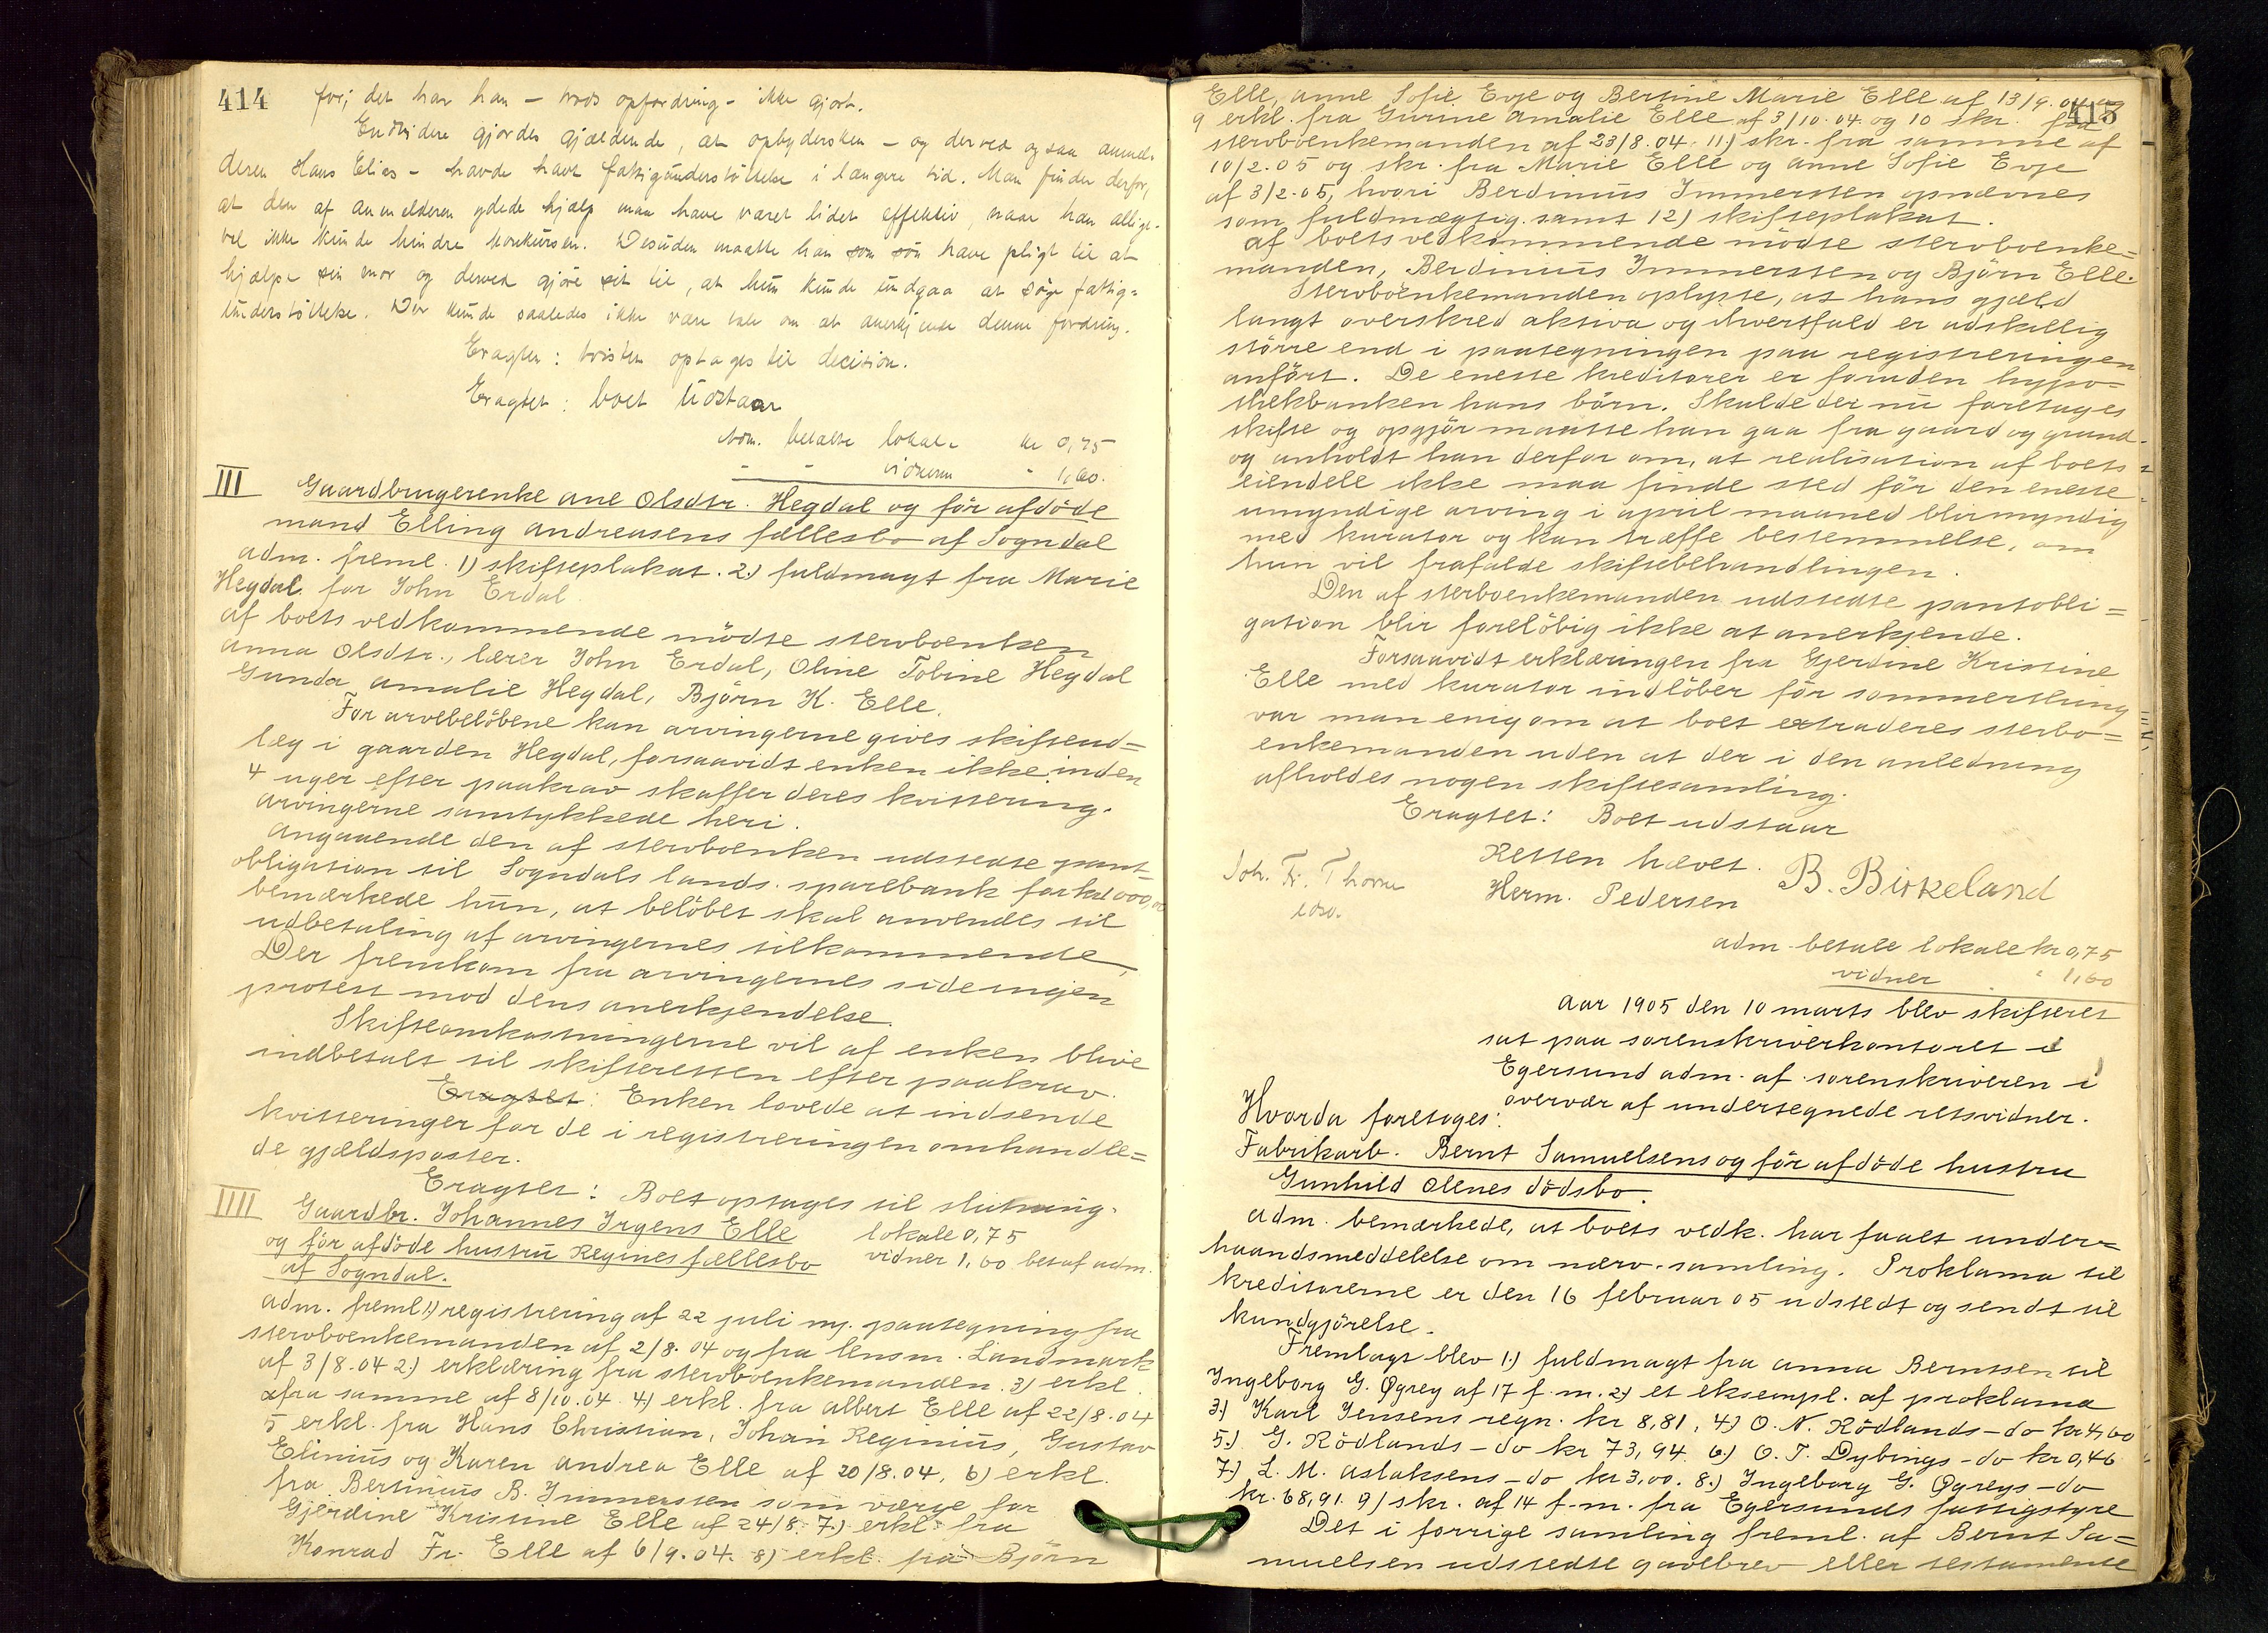 414
for; det har han – trods opfordring – ikke gjort.
Endvidere gjordes gjældende, at opbydersken – og derved ogsaa anmel-
deren Hans Elias – havde havt fattigunderstöttelse i længere tid. Man finder derfor,
at den af anmelderen ydede hjælp maa have været lidet effektiv, naar han allige-
vel ikke kunde hindre konkursen. Desuden maatte han som sön have pligt til at
hjælpe sin mor og derved gjöre sit til, at hun kunde undgaa at söge fattig=
understöttelse. Der kunde saaledes ikke være tale om at anerkjende denne fordring.
Eragtes: tvisten optages til decision.
Eragtet: boet udstaar
adm. betalte lokale kr 0,75
" " vidnerne " 1,60.
III Gaardbrugerenke Ane Olsdtr. Hegdal og för afdöde
mand Elling Andreasens fællesbo af Sogndal
Adm. freml. 1) skifteplakat. 2.) fuldmagt fra Marie
Hegdal for John Erdal.
Af boets vedkommende mödte stervboenken
Anna Olsdtr., lærer John Erdal, Oline Tobine Hegdal
Gunda Amalie Hegdal, Björn K. Elle.
For arvebelöbene kan arvingerne gives skifteud=
læg i gaarden Hegdal, forsaavidt enken ikke inden
4 uger efter paakrav skaffer deres kvittering.
Arvingerne samtykkede heri.
Angaaende den af stervboenken udstedte pant-
obligation til Sogndals lands. sparebank for kr 1000,00
bemærkede hun, at belöbet skal anvendes til
udbetaling af arvingernes tilkommende,
Der fremkom fra arvingernes side ingen
protest mod dens anerkjendelse.
Skifteomkostningerne vil af enken blive
indbetalt til skifteretten efter paakrav.
Eragtet: Enken lovede at indsende
kvitteringer for de i registreringen omhandle=
de gjældsposter.
Eragtet: Boet optages til slutning.
IIII Gaardbr. Johannes Irgens Elle lokale 0,75
og för afdöde hustru Regines fællesbo vidner 1,60 bet af adm.
af Sogndal.
Adm. freml 1) registrering af 22 juli m. paategning fra
stervboenkemanden af 2/8.04 og fra lensm. Landmark
af 3/8.04 2.) erklæring fra stervboenkemanden. 3) erkl.
fra samme af 8/10.04 4) erkl. fra Albert Elle af 22/8.04
5 erkl. fra Hans Christian, Johan Reginius, Gustav
Elinius og Karen Andrea Elle af 20/8.04. 6) erkl.
fra Bertinius B. Immerstein som værge for
Gjerdine Kristine Elle af 24/8. 7.) erkl. fra
Konrad Fr. Elle af 6/9.04. 8) erkl. fra Björn
415
Elle, Anne Sofie Evje og Bertine Marie Elle af 13/9.04 og
9 erkl. fra Gurine Amalie Elle af 3/10.04. og 10 skr. fra
stervboenkemanden af 23/8.04. 11.) skr. fra samme af
10/2.05 og skr. fra Marie Elle og Anne Sofie Evje
af 3/2.05, hvori Berdinius Immerstein opnævnes
som fuldmægtig. samt 12) skifteplakat.
Af boets vedkommende mödte stervboenke=
manden, Berdinius Immerstein og Björn Elle.
Stervboenkemanden oplyste, at hans gjæld
langt overskred aktiva og ihvertfald er adskillig
större end i paategningen paa registreringen
anfört. De eneste kreditorer er foruden hypo=
thekbanken hans börn. Skulde der nu foretages
skifte og opgjör maatte han gaa fra gaard og grund
og anholdt han derfor om, at realisation af boets
eiendele ikke maa finde sted för den eneste
umyndige arving i april maaned blir myndig
med kurator og kan træffe bestemmelse, om
hun vil frafalde skiftebehandlingen.
Den af stervboenkemanden udstedte pantobli=
gation blir forelöbig ikke at anerkjende.
Forsaavidt erklæringen fra Gjerdine Kristine
Elle med kurator indlöber för sommerthing
var man enig om at boet extraderes stervbo=
enkemanden uden at der i den anledning
afholdes nogen skiftesamling.
Eragtet: Boet udstaar
Retten hævet. B. Birkeland
Joh. Fr. Thorne Herm. Pedersen
edsv.
adm. betalt lokale kr 0,75
vidner " 1,60
Aar 1905 den 10 marts blev skifteret
sat paa sorenskriverkontoret i
Egersund adm. af sorenskriveren i
overvær af undertegnede retsvidner.
Hvorda foretoges:
Fabrikarb. Bernt Samuelsens og för afdöde hustru
Gunhild Olenes dödsbo.
Adm. bemærkede, at boets vedk. har faaet under=
haandsmeddelelse om nærv. samling. Proklama til
kreditorerne er den 16 februar 05 udstedt og sendt til
kundgjörelse.
Fremlagt blev 1.) fuldmagt fra Anna Berntsen til
Ingeborg G. Øgrey af 17 f.m. 2) et eksempl. af proklama
3.) Karl Jensens regn. kr 8,81, 4.) O. N. Rödlands – do kr 4,60
5.) G. Rödlands – do kr 73,94. 6.) O. T. Dybings – do kr 0,46
7.) L. M. Aslaksens – do kr 3,00. 8.) Ingeborg G. Øgreys – do
kr. 68,91. 9) skr. af 14 f.m. fra Egersunds fattigstyre
Det i forrige samling freml. af Bernt Sa=
muelsen udstedte gavebrev eller testamente